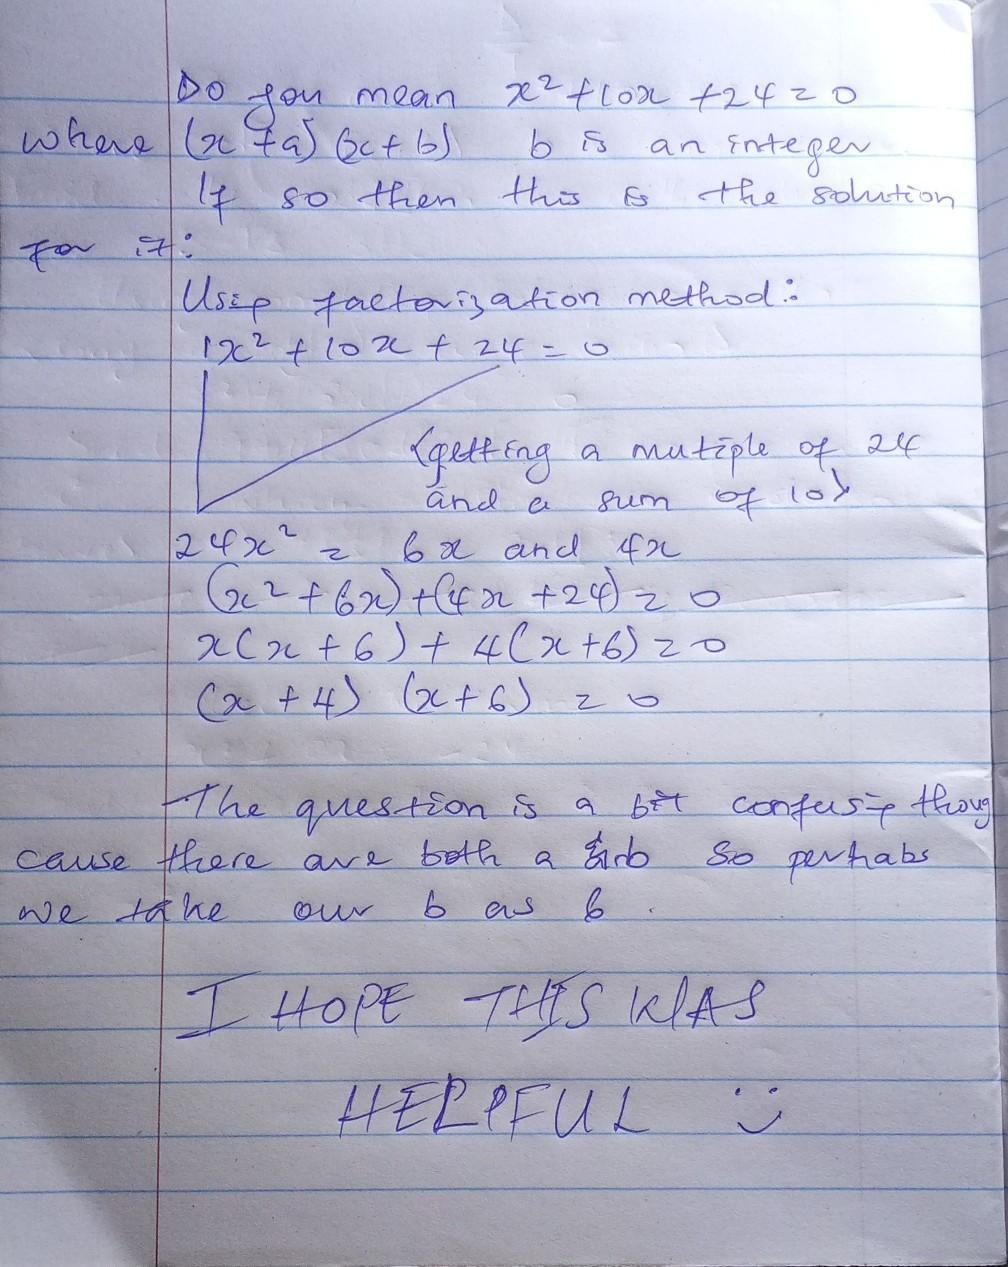 Do you mean x² + 10x + 24 = 0
where (x + a) (x + b) b is an integer
If so then this is the solution
for it:
Using factorization method:
1x² + 10x + 24 = 0
(getting a mutiple of 24
and a sum of 10)
24x² = 6x and 4x
(x² + 6x) + (4x + 24) = 0
x(x + 6) + 4(x + 6) = 0
(x + 4) (x + 6) = 0
The question is a bit confusing thoug
cause there are both a b so perhabs
we take our b as 6.
I HOPE THIS WAS
HELPFUL :)